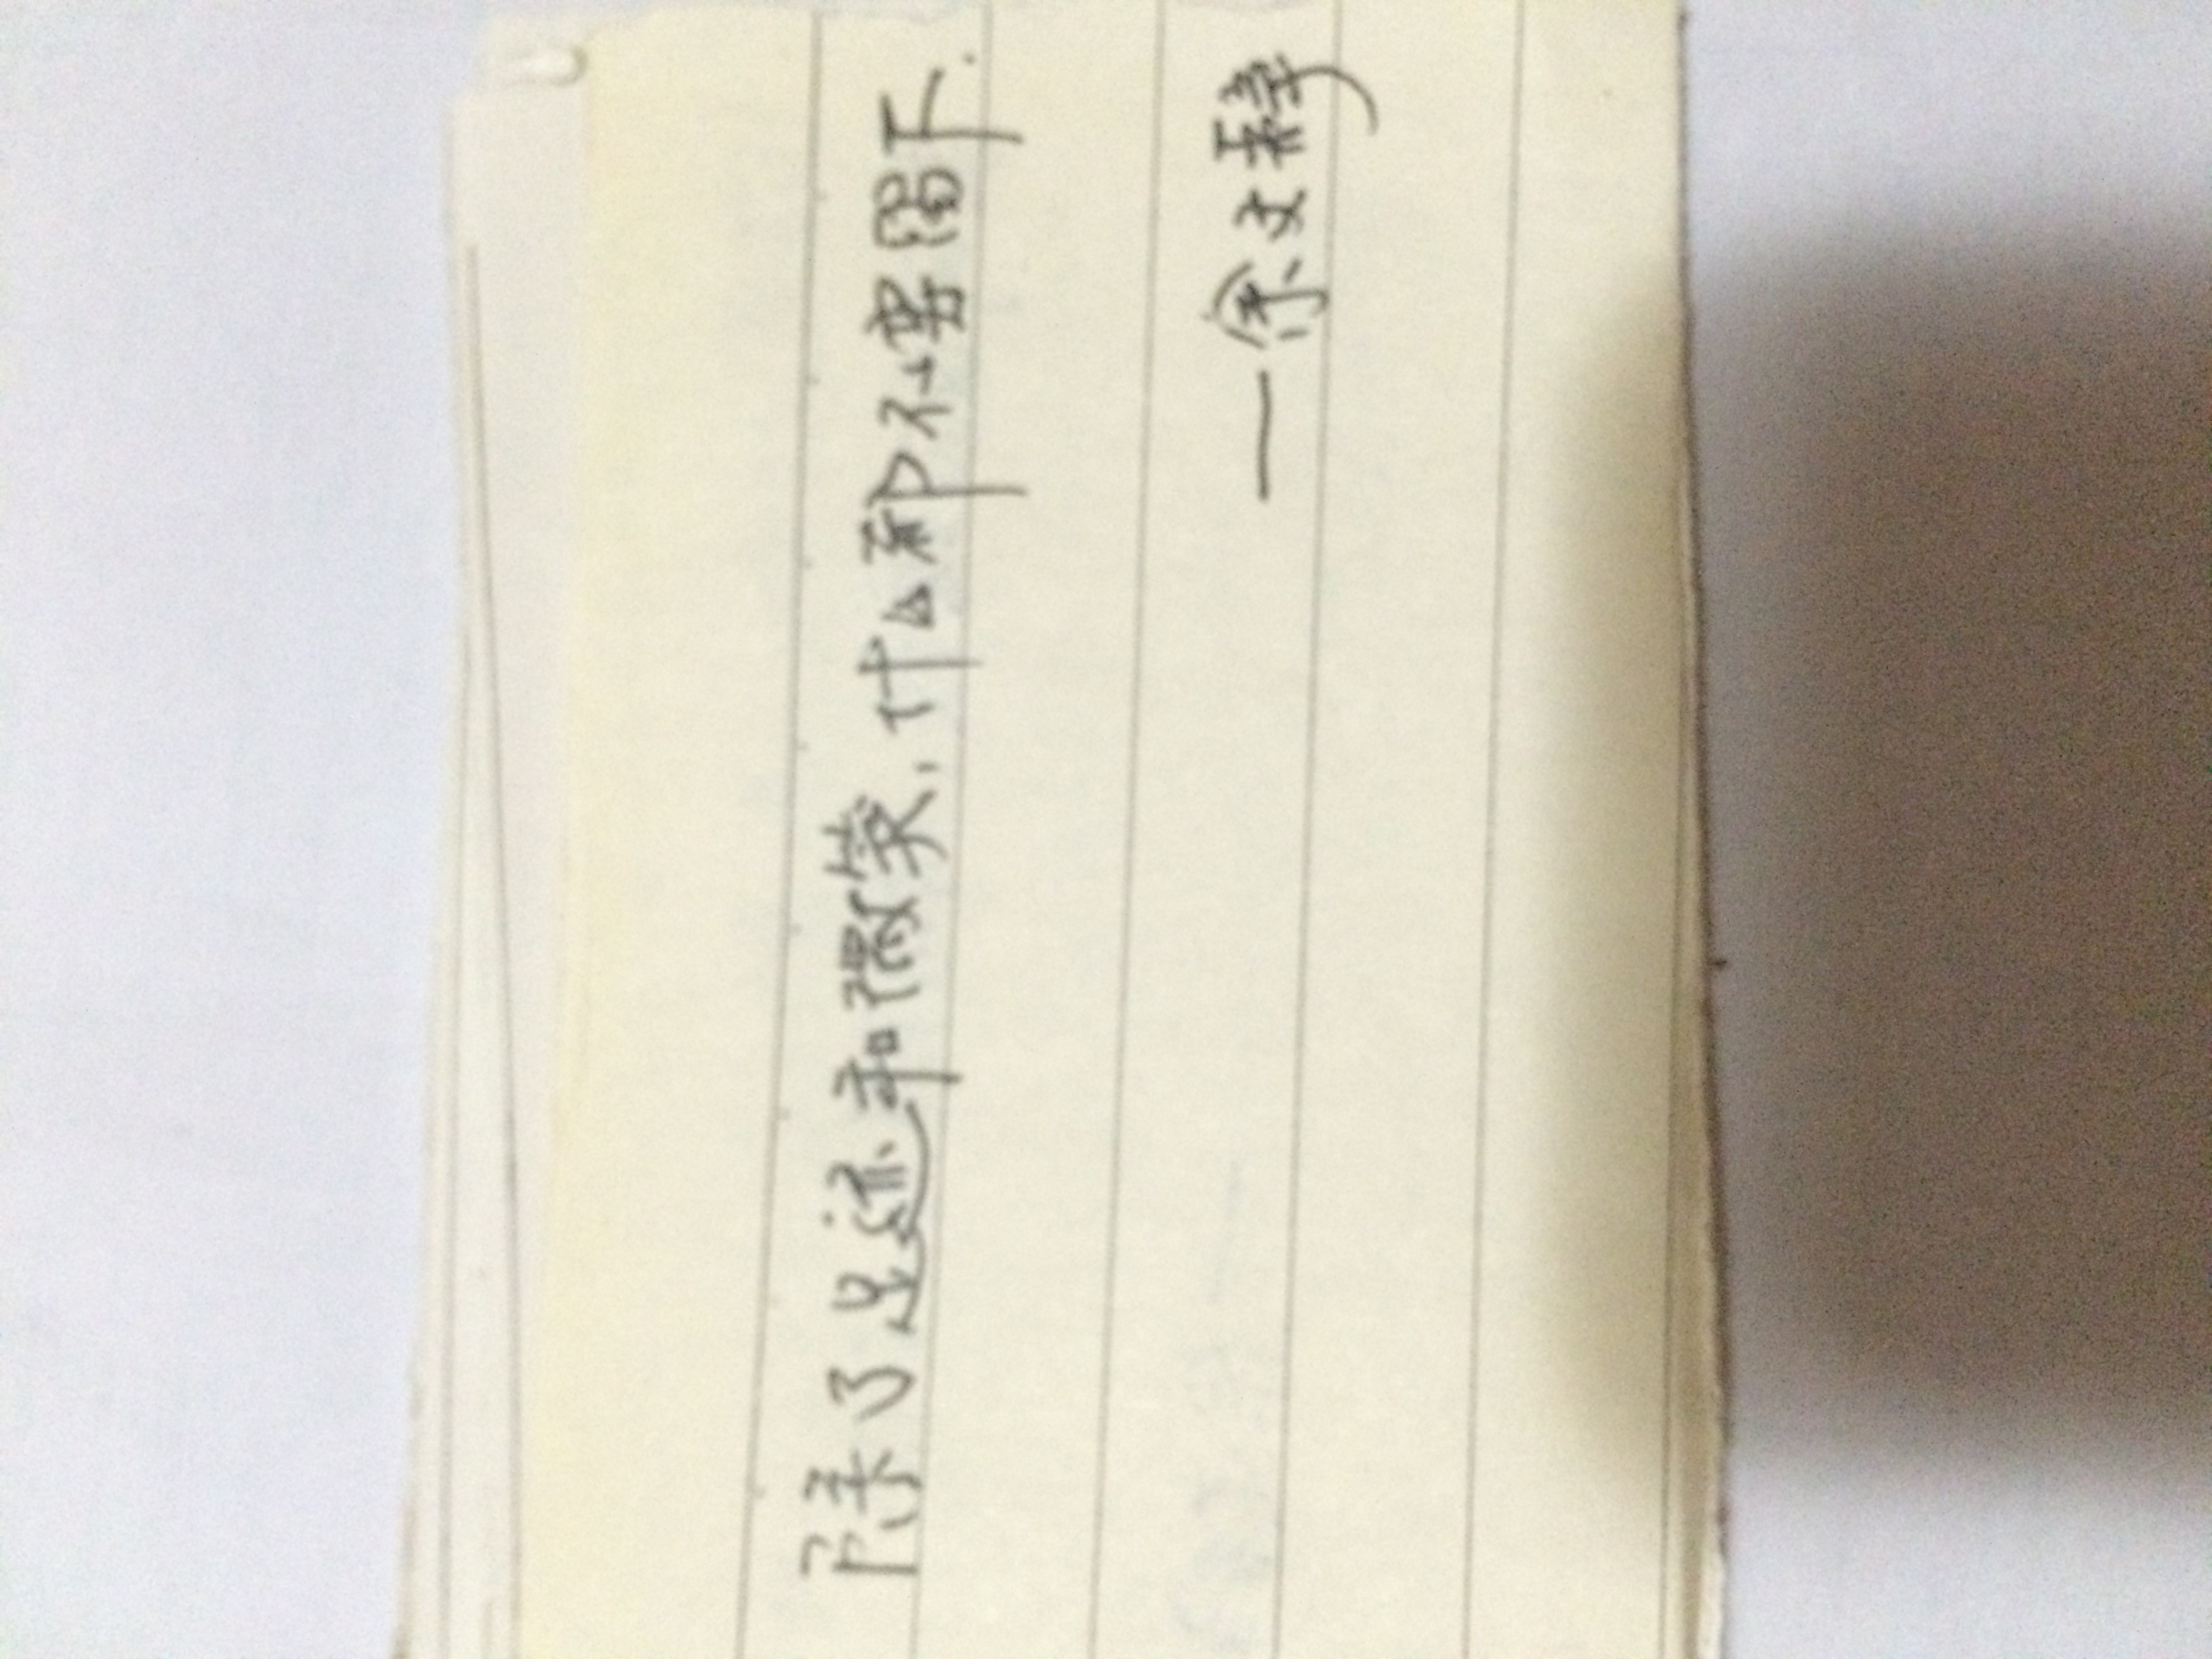 除了足迹和微笑，什么都不要留下.
—余文